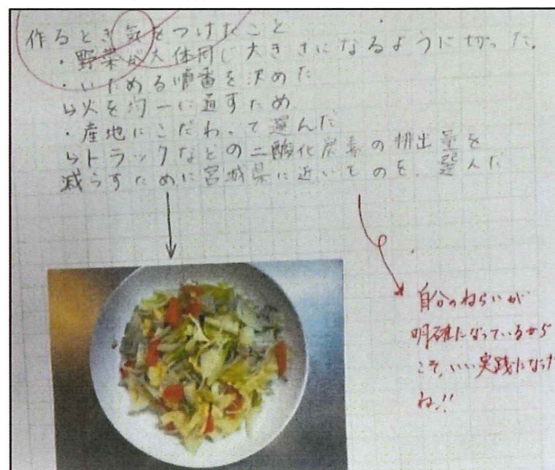 作るとき気をつけたこと
・野菜が大体同じ大きさになるように切った。
・いためる順番を決めた
↳火を均一に通すため
・産地にこだわって選んだ
↳トラックなどの二酸化炭素の排出量を
減らすために宮城県に近いものを、選んだ
自分のねらいが
明確になっているから
こそ、いい実践になった
ね!!